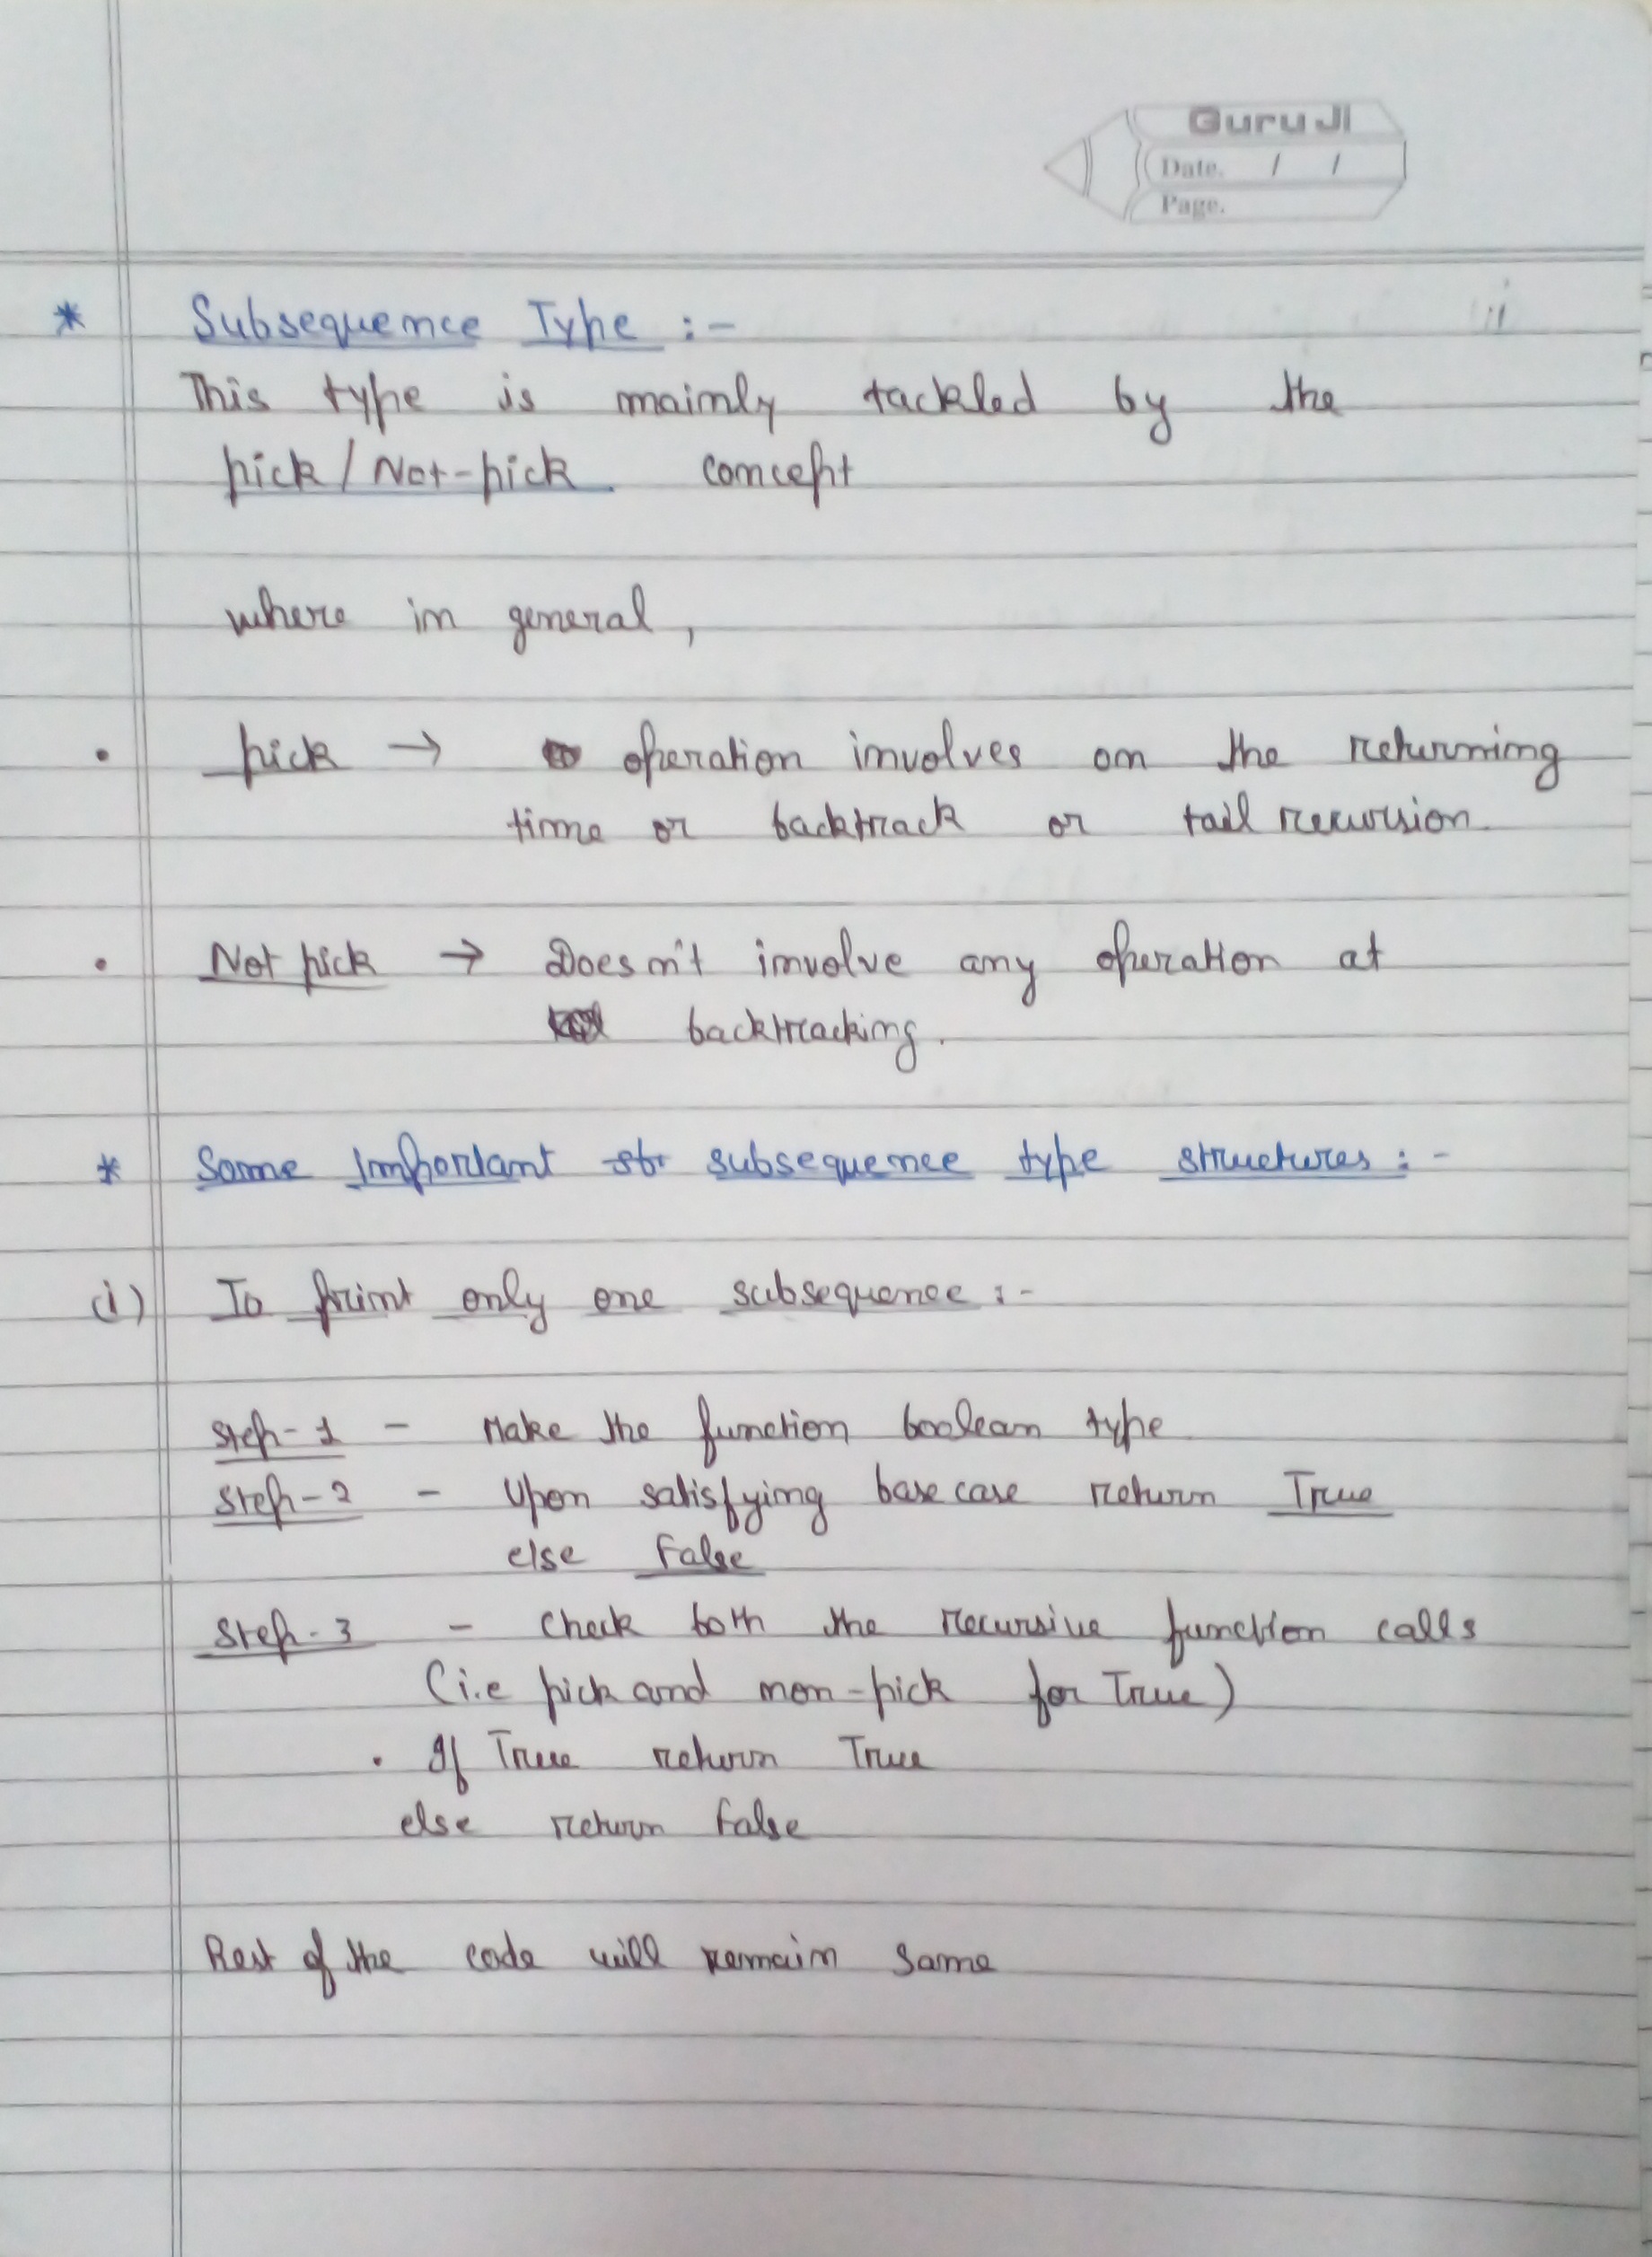 Guru Ji
Date. / /
Page.
* Subsequence Type :-
This type is mainly tackled by the
pick / Not-pick concept
where in general,
• pick → operation involves on the returning
time or backtrack or tail recursion
• Not pick → Doesn't involve any operation at
backtracking.
* Some Important str subsequence type structures :-
(i) To print only one subsequence :-
Step-1 - Make the function boolean type
Step-2 - Upon satisfying base case return True
else False
Step-3 - Check both the recursive function calls
(i.e pick and non-pick for True)
• If True return True
else return False
Rest of the code will remain same